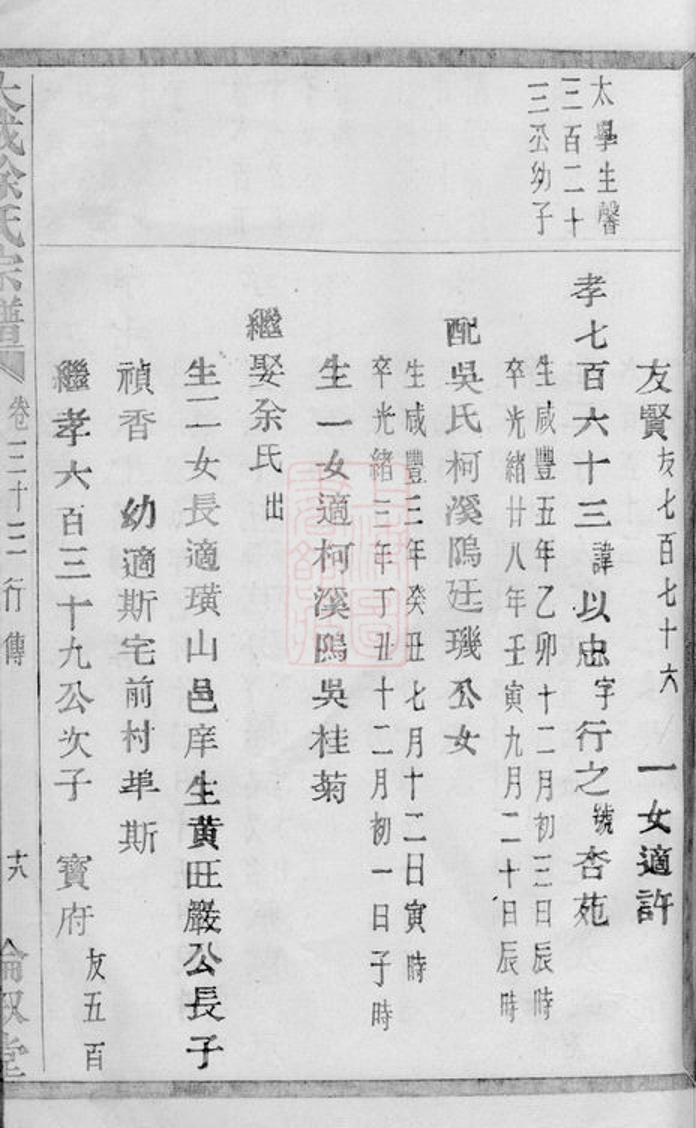 太學生馨
三百二十
三公幼子
友賢友七百七十六 一女適許
孝七百六十三諱以忠字行之號杏苑
生咸豐五年乙卯十二月初三日辰時
卒光緒廿八年壬寅九月二十日辰時
配吳氏柯溪隖廷璣公女
生咸豐三年癸丑七月十二日寅時
卒光緒三年丁丑十二月初一日子時
生一女適柯溪隖吳桂菊
繼娶余氏出
生二女長適璜山邑庠生黄旺嚴公長子
禎香 幼適斯宅前村埠斯
繼孝六百三十九公次子 寶府友五百
大成徐氏宗譜 卷三十三 行傳 十八 倫叙堂